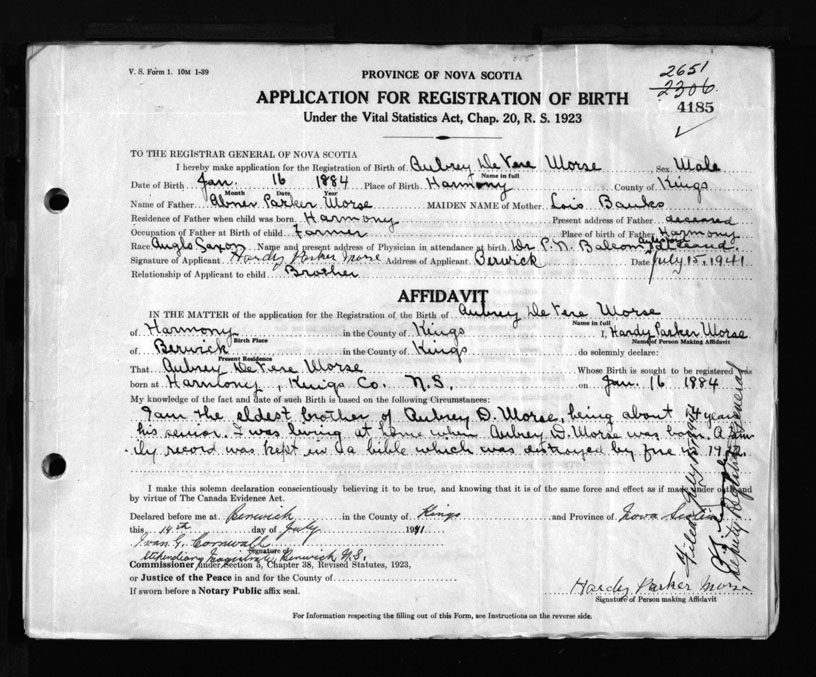 V. S. Form 1. 10M 1-39
2651
2306
4185
PROVINCE OF NOVA SCOTIA
APPLICATION FOR REGISTRATION OF BIRTH
Under the Vital Statistics Act, Chap. 20, R. S. 1923
TO THE REGISTRAR GENERAL OF NOVA SCOTIA
I hereby make application for the Registration of Birth of Aubrey De Vere Morse Sex Male
Name in full
Date of Birth Jan. 16 1884 Place of Birth Harmony County of Kings
Month Date Year
Name of Father Abner Parker Morse MAIDEN NAME of Mother Lois Banks
Residence of Father when child was born Harmony Present address of Father deceased
Occupation of Father at Birth of child Farmer Place of birth of Father Harmony
Race Anglo Saxon Name and present address of Physician in attendance at birth Dr P. M. Balcom
Signature of Applicant Hardy Parker Morse Address of Applicant Berwick Date July 15, 1941
Relationship of Applicant to child Brother
AFFIDAVIT
IN THE MATTER of the application for the Registration of the Birth of Aubrey De Vere Morse
Name in full
of Harmony in the County of Kings I, Hardy Parker Morse
Birth Place Name of Person Making Affidavit
of Berwick in the County of Kings do solemnly declare:
Present Residence
That Aubrey De Vere Morse Whose Birth is sought to be registered was
born at Harmony, Kings Co. N.S. on Jan. 16 1884
My knowledge of the fact and date of such Birth is based on the following Circumstances:
I am the eldest brother of Aubrey D. Morse, being about 14 years
his senior. I was living at home when Aubrey D. Morse was born. A fam-
ily record was kept in a bible which was destroyed by fire in
I make this solemn declaration conscientiously believing it to be true, and knowing that it is of the same force and effect as if made under oath and
by virtue of The Canada Evidence Act.
Declared before me at Berwick in the County of Kings and Province of Nova Scotia
this 14th day of July 1941
Ivan G. Cornwall
Signature of
Stipendiary Magistrate, Berwick N.S.
Commissioner under Section 5, Chapter 38, Revised Statutes, 1923,
or Justice of the Peace in and for the County of
If sworn before a Notary Public affix seal.
Hardy Parker Morse
Signature of Person making Affidavit
For Information respecting the filling out of this Form, see Instructions on the reverse side.
Filed July
Deputy Registrar General